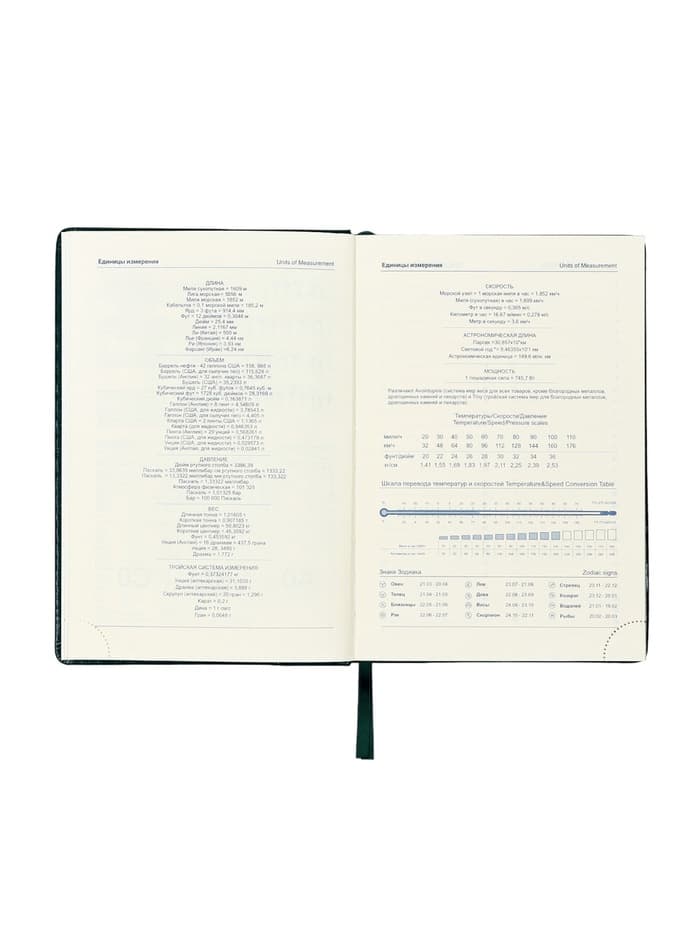 Единицы измерения Units of Measurement
ДЛИНА
Миля (сухопутная) = 1609 м
Лига морская = 5556 м
Миля морская = 1852 м
Кабельтов = 0,1 морской мили = 185,2 м
Ярд = 3 фута = 914,4 мм
Фут = 12 дюймов = 0,3048 м
Дюйм = 25,4 мм
Линия = 2,1167 мм
Ли (Китай) = 500 м
Лье (Франция) = 4,44 км
Ри (Япония) = 3,93 км
Фарсанг (Иран) =6,24 км
ОБЪЕМ
Баррель нефти - 42 галлона США = 158, 988 л
Баррель (США, для сыпучих тел) = 115,628 л
Бушель (Англия) = 32 англ. кварты = 36,3687 л
Бушель (США) = 35,2393 л
Кубический ярд = 27 куб. футов = 0,7645 куб. м
Кубический фут = 1728 куб. дюймов = 28,3168 л
Кубический дюйм = 0,163871 л
Галлон (Англия) = 8 пинт = 4,54609 л
Галлон (США, для жидкости) = 3,78543 л
Галлон (США, для сыпучих тел) = 4,405 л
Кварта США = 2 пинты США = 1,1365 л
Кварта (для жидкости) = 0,946353 л
Пинта (Англия) = 20 унций = 0,568261 л
Пинта (США, для жидкости) = 0,473179 л
Унция (США, для жидкости) = 0,029573 л
Унция (Англия, для жидкости) = 0,02841 л
ДАВЛЕНИЕ
Дюйм ртутного столба = 3386,39
Паскаль = 33,8639 миллибар мм ртутного столба = 1333,22
Паскаль = 13,3322 миллибар мм ртутного столба = 133,322
Паскаль = 1,33322 миллибар
Атмосфера физическая = 101 325
Паскаль = 1,01325 бар
Бар = 100 000 Паскаль
ВЕС
Длинная тонна = 1,01605 т
Короткая тонна = 0,907185 т
Длинный центнер = 50,8023 кг
Короткий центнер = 45,3592 кг
Фунт = 0,453592 кг
Унция (Англия) = 16 драхмам = 437,5 грана
Унция = 28, 3495 г
Драхма = 1,772 г
ТРОЙСКАЯ СИСТЕМА ИЗМЕРЕНИЯ
Фунт = 0,37324177 кг
Унция (аптекарская) = 31,1035 г
Драхма (аптекарская) = 3,888 г
Скрупул (аптекарская) = 20 гран = 1,296 г
Карат = 0,2 г
Дина = 1 г см/с
Гран = 0,0648 г
Единицы измерения Units of Measurement
СКОРОСТЬ
Морской узел = 1 морская миля в час = 1,852 км/ч
Миля (сухопутная) в час = 1,609 км/ч
Фут в секунду = 0,305 м/с
Километр в час = 16,67 м/мин = 0,278 м/с
Метр в секунду = 3,6 км/ч
АСТРОНОМИЧЕСКАЯ ДЛИНА
Астрономическая единица = 149,6 млн. км
МОЩНОСТЬ
1 лошадиная сила = 745,7 Вт
Различают Avoirdupois (система мер веса для всех товаров, кроме благородных металлов,
драгоценных камней и лекарств) и Troy (тройская система мер для благородных металлов,
драгоценных камней и лекарств).
Температуры/Скорости/Давление
Temperature/Speed/Pressure scales
мили/ч 20 30 40 50 60 70 80 90 100 110
км/ч 32 48 64 80 96 112 128 144 160 176
фунт/дюйм 20 22 24 26 28 30 32 34 36
кг/см 1,41 1,55 1,69 1,83 1,97 2,11 2,25 2,39 2,53
Шкала перевода температур и скоростей Temperature&Speed Conversion Table
Знаки Зодиака Zodiac signs
Овен 21.03 - 20.04 Лев 23.07 - 21.08 Стрелец 23.11 - 22.12
Телец 21.04 - 21.05 Дева 22.08 - 23.09 Козерог 23.12 - 20.01
Близнецы 22.05 - 21.06 Весы 24.09 - 23.10 Водолей 21.01 - 19.02
Рак 22.06 - 22.07 Скорпион 24.10 - 22.11 Рыбы 20.02 - 20.03